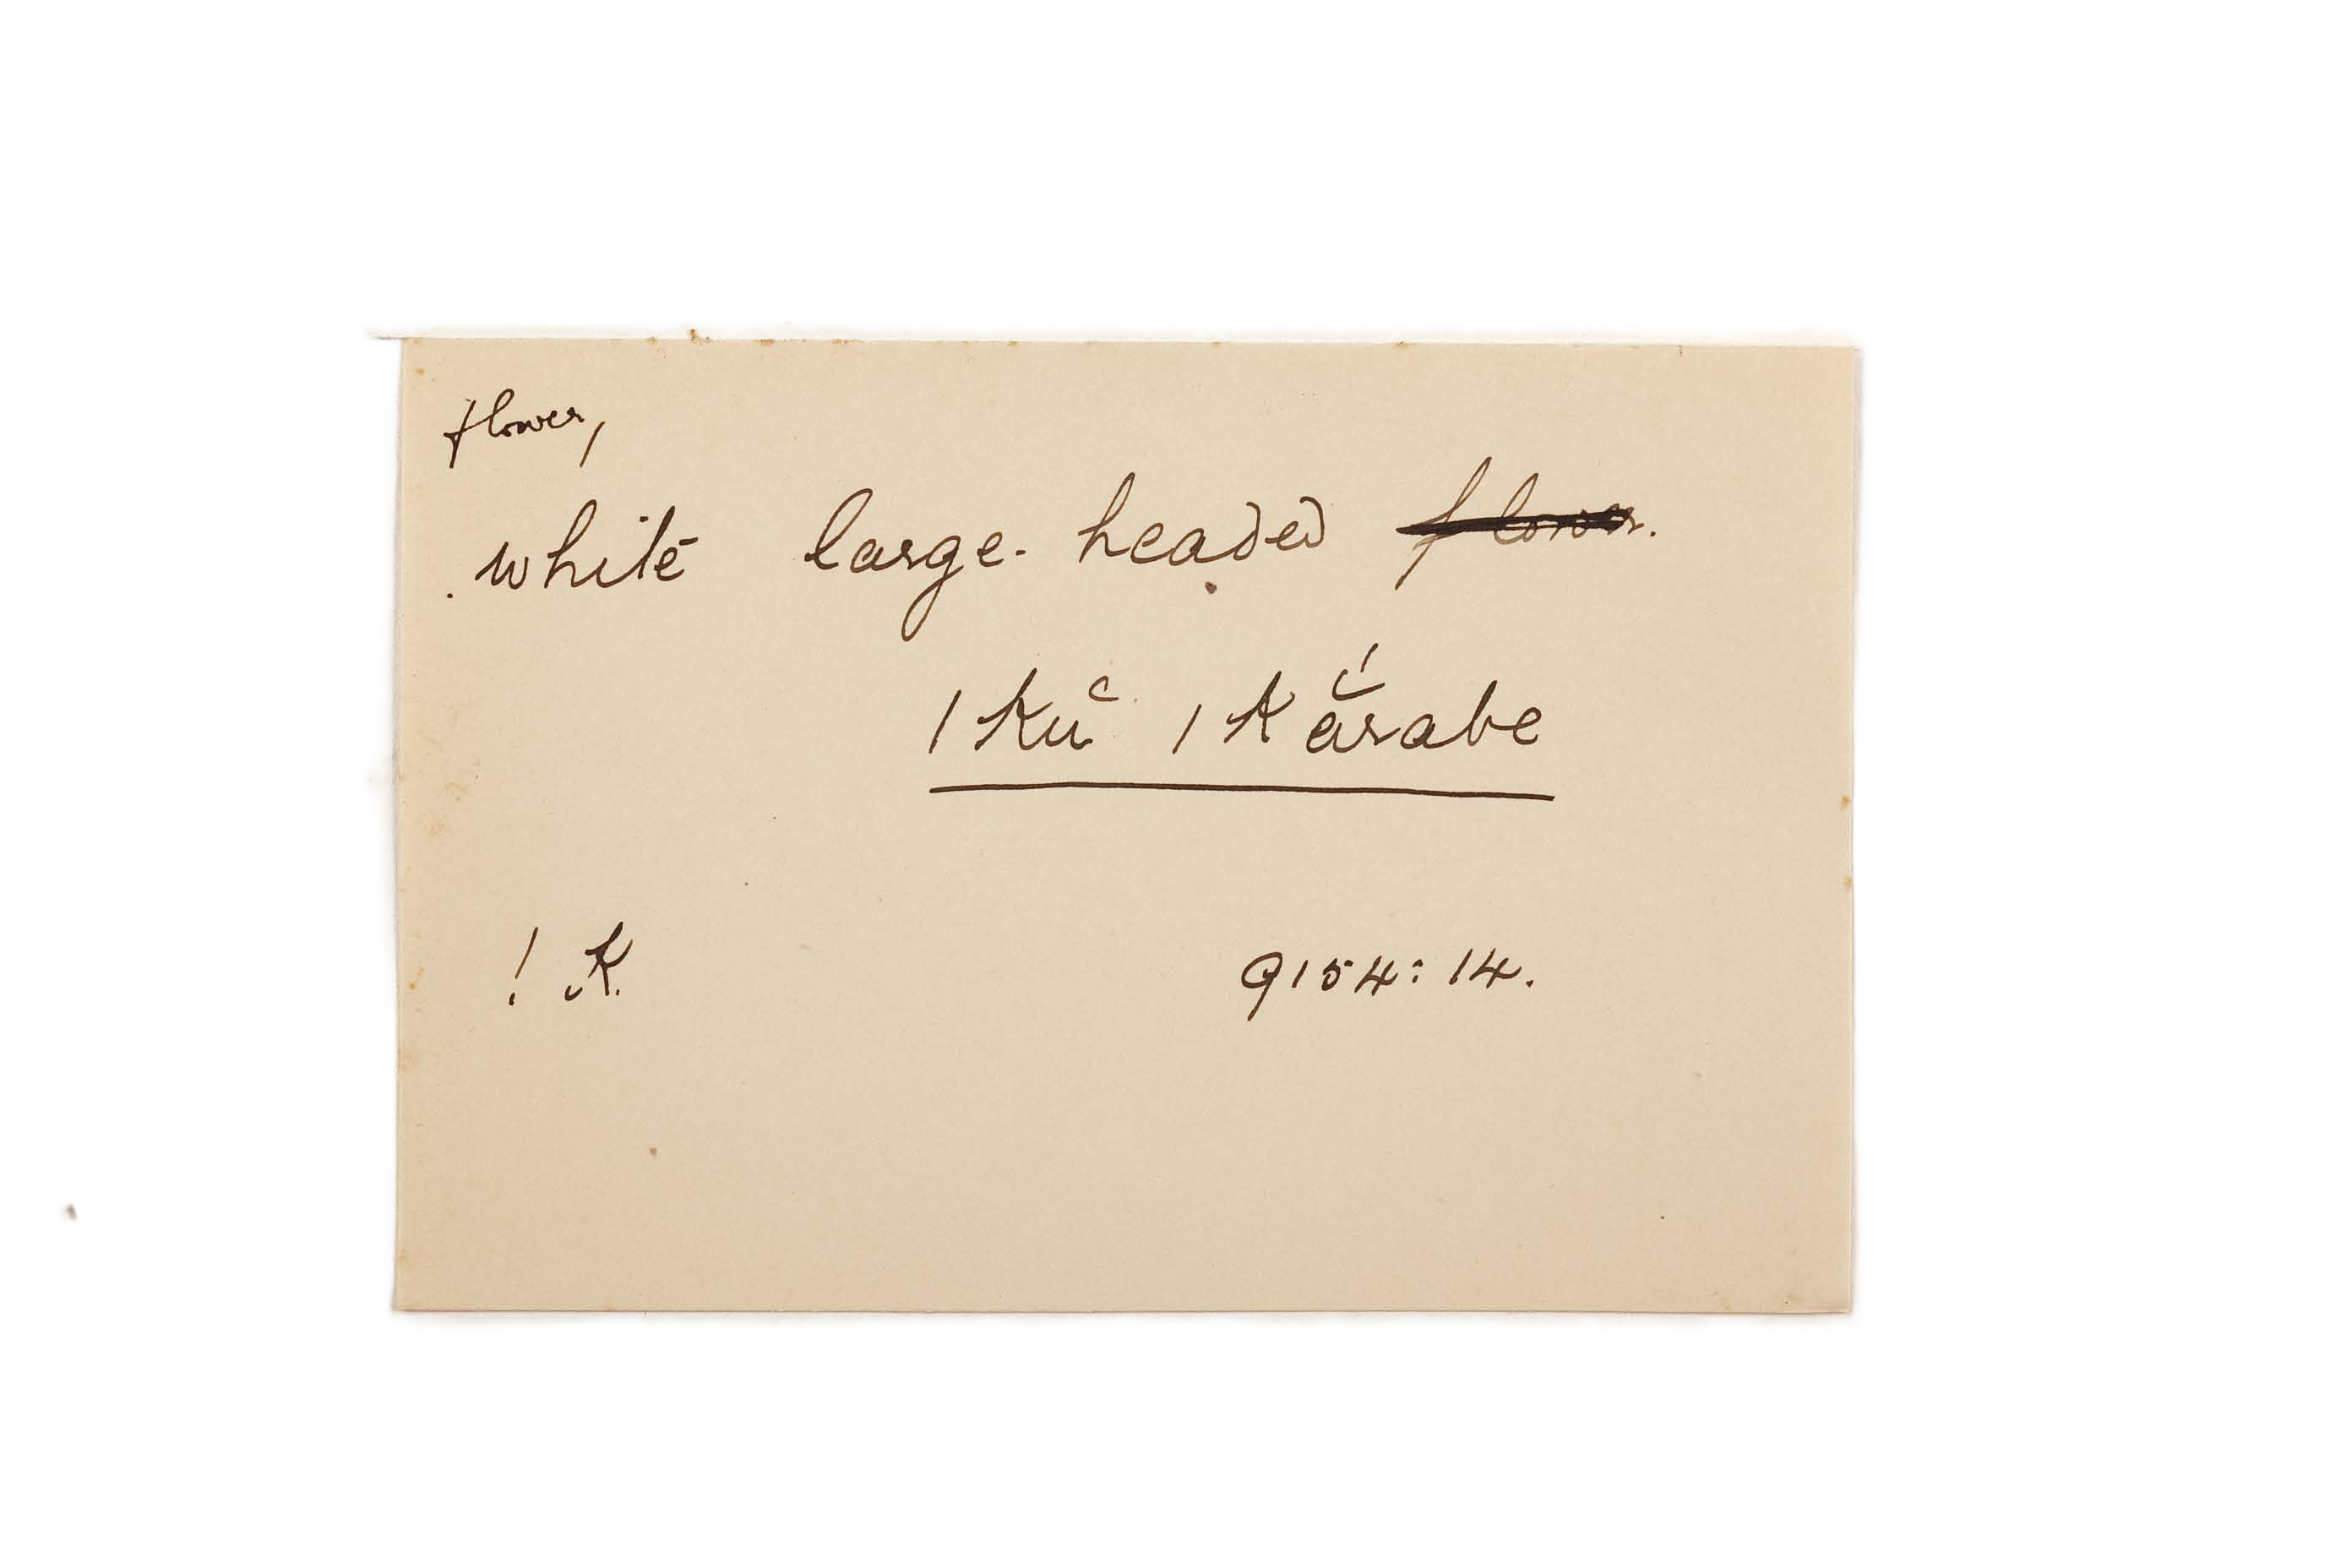 flower,
white large-headed ~~flower~~.
|kŭ |kắrabe
! K. 9154:14.